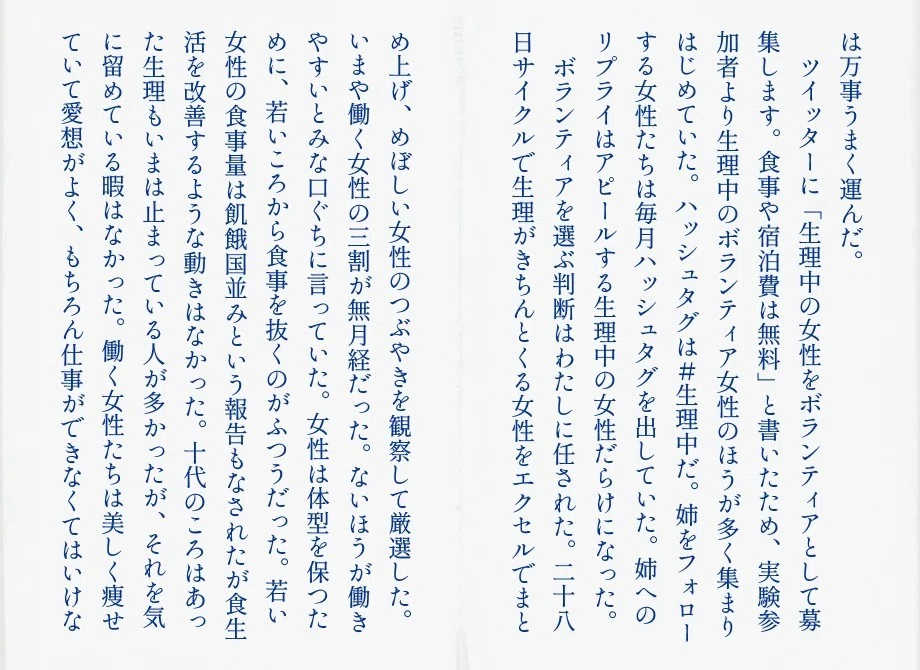 は万事うまく運んだ。
　ツイッターに「生理中の女性をボランティアとして募
集します。食事や宿泊費は無料」と書いたため、実験参
加者より生理中のボランティア女性のほうが多く集まり
はじめていた。ハッシュタグは＃生理中だ。姉をフォロー
する女性たちは毎月ハッシュタグを出していた。姉への
リプライはアピールする生理中の女性だらけになった。
　ボランティアを選ぶ判断はわたしに任された。二十八
日サイクルで生理がきちんとくる女性をエクセルでまと
め上げ、めぼしい女性のつぶやきを観察して厳選した。
いまや働く女性の三割が無月経だった。ないほうが働き
やすいとみな口ぐちに言っていた。女性は体型を保つた
めに、若いころから食事を抜くのがふつうだった。若い
女性の食事量は飢餓国並みという報告もなされたが食生
活を改善するような動きはなかった。十代のころはあっ
た生理もいまは止まっている人が多かったが、それを気
に留めている暇はなかった。働く女性たちは美しく痩せ
ていて愛想がよく、もちろん仕事ができなくてはいけな